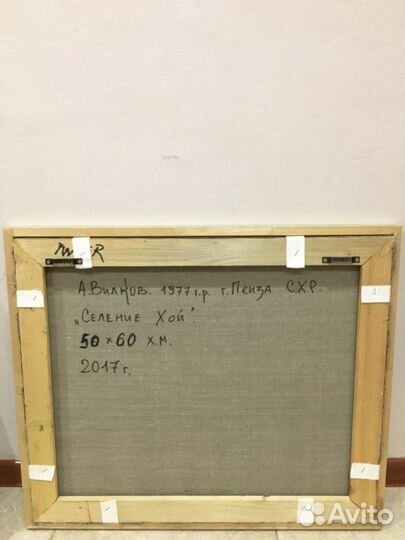 А.Вилков. 1977г.р. г.Пенза СХР.
„Селение Хой".
50 × 60 х.м.
2017г.
Avito